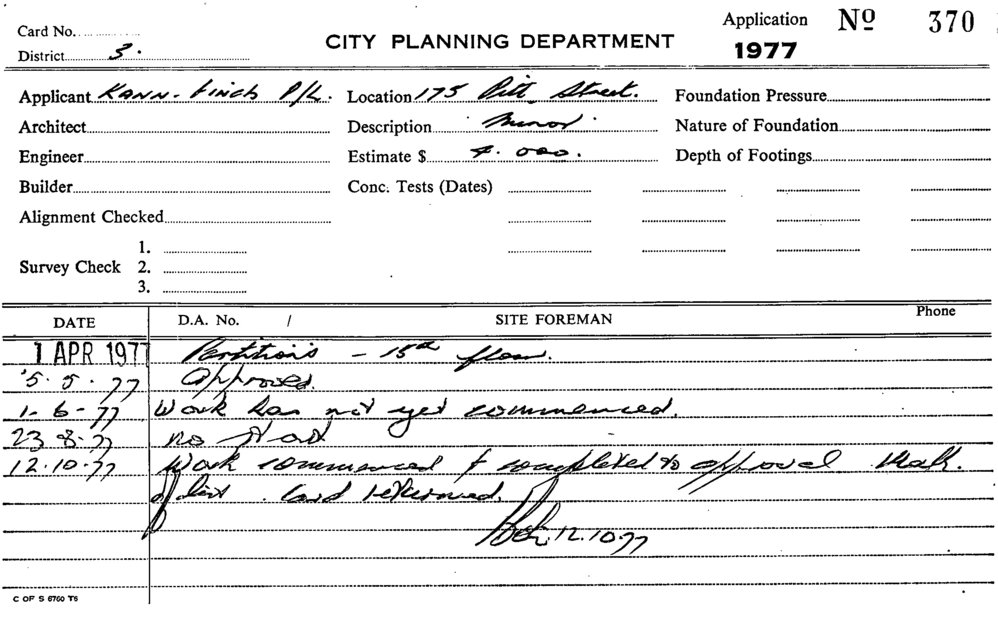 Card No.
District 3.
CITY PLANNING DEPARTMENT
Application Nº 370
1977
Applicant Kann-Finch P/L. Location 175 Pitt Street. Foundation Pressure
Architect Description Minor. Nature of Foundation
Engineer Estimate $ 4.000. Depth of Footings
Builder Conc. Tests (Dates)
Alignment Checked
1.
Survey Check 2.
3.
DATE D.A. No. / SITE FOREMAN Phone
1 APR 1977 Partitions - 15th floor.
5.5.77 Approved.
1-6-77 Work has not yet commenced.
23-8-77 no start
12.10.77 Work commenced & completed to approval
list. Card returned.
12.10.77
C OF S 6760 T6